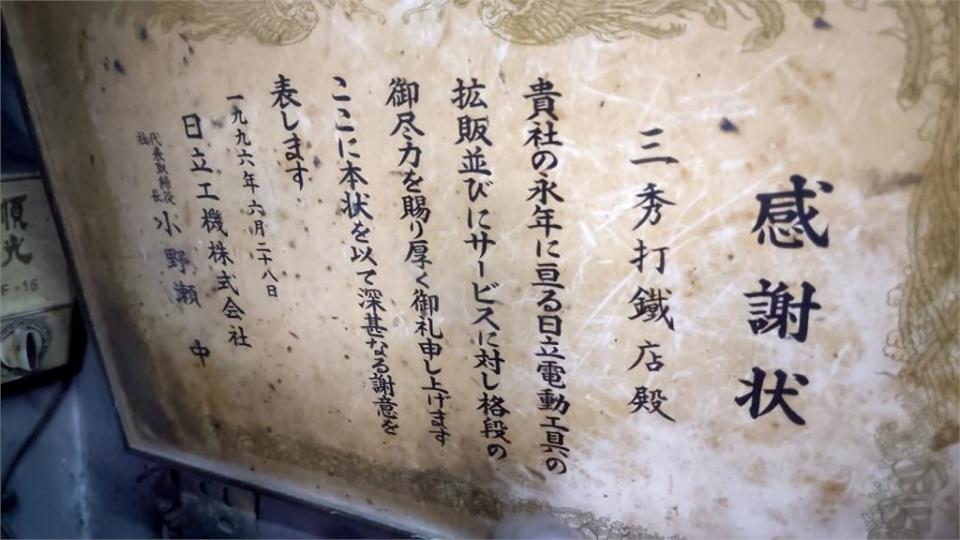 感謝状
三秀打鐵店殿
貴社の永年に亘る日立電動工具の
拡販並びにサービスに対し格段の
御尽力を賜り厚く御礼申し上げます
ここに本状を以て深甚なる謝意を
表します
一九九六年六月二十八日
日立工機株式会社
代表取締役
社長
小野瀬 中
順光
F-16